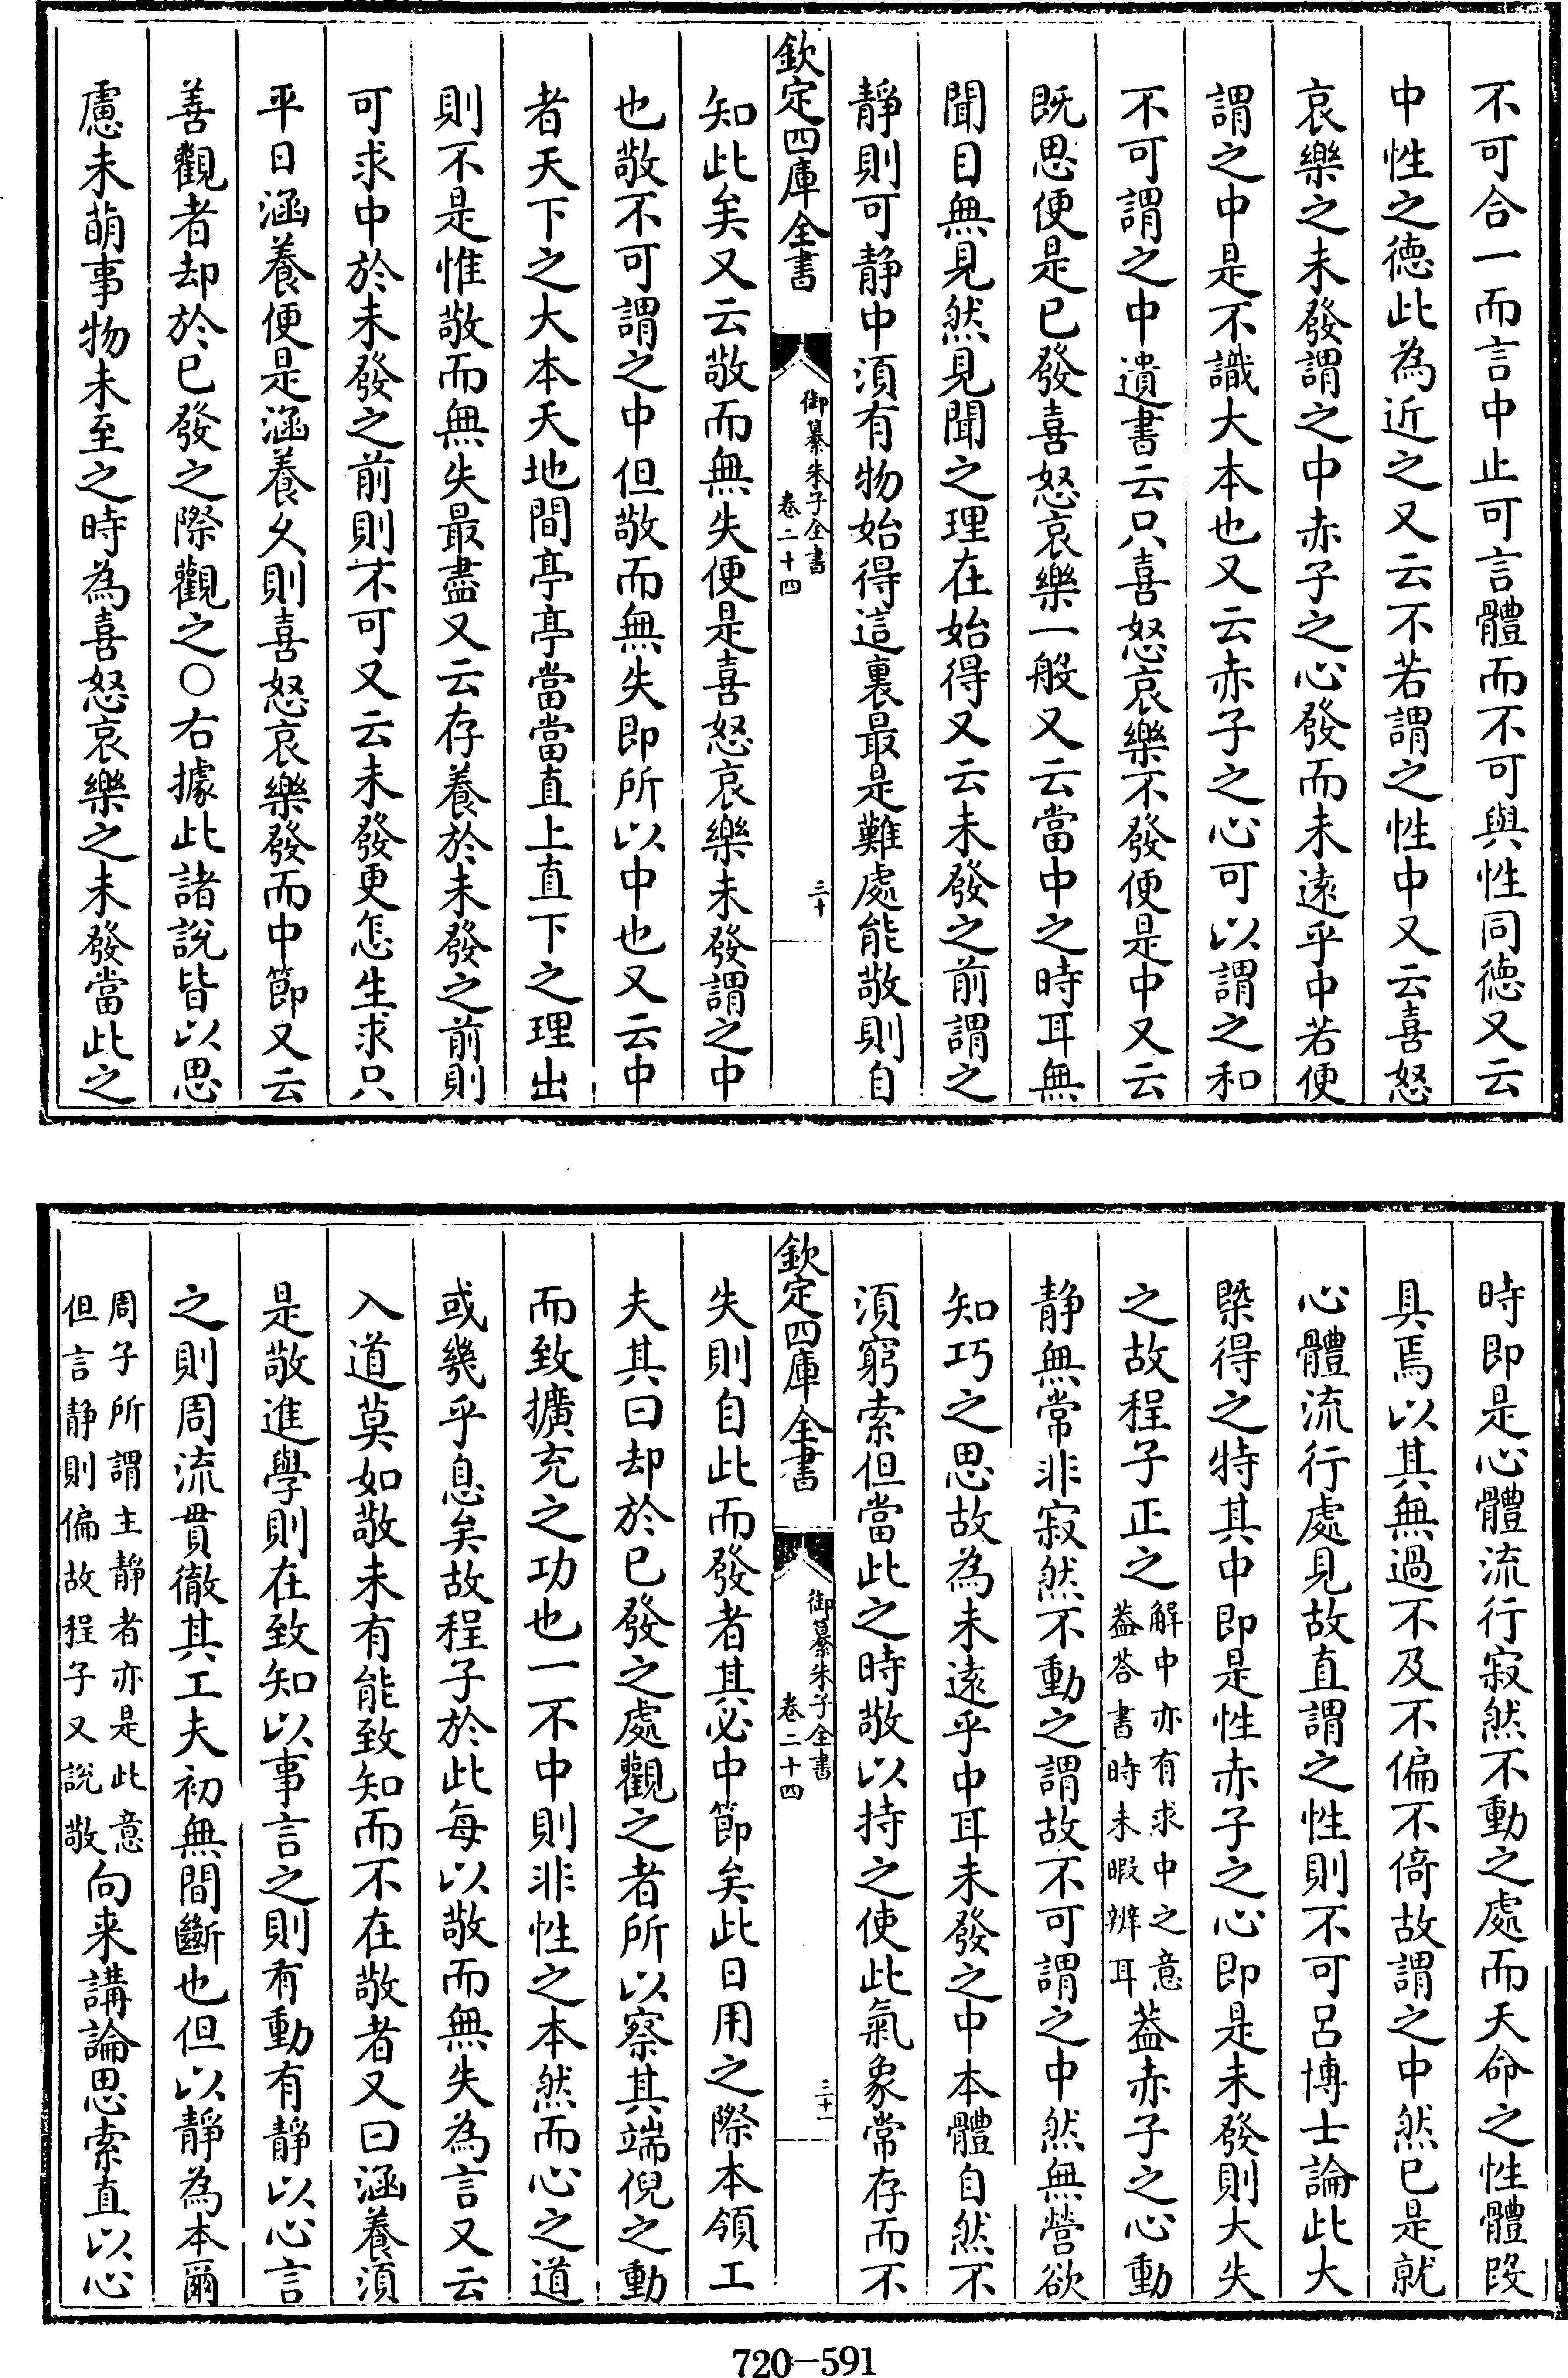 不可合一而言中止可言體而不可與性同德又云
中性之德此為近之又云不若謂之性中又云喜怒
哀樂之未發謂之中赤子之心發而未遠乎中若便
謂之中是不識大本也又云赤子之心可以謂之和
不可謂之中遺書云只喜怒哀樂不發便是中又云
既思便是已發喜怒哀樂一般又云當中之時耳無
聞目無見然見聞之理在始得又云未發之前謂之
靜則可静中須有物始得這裏最是難處能敬則自
欽定四庫全書
御纂朱子全書
卷二十四
三十
知此矣又云敬而無失便是喜怒哀樂未發謂之中
也敬不可謂之中但敬而無失即所以中也又云中
者天下之大本天地間亭亭當當直上直下之理出
則不是惟敬而無失最盡又云存養於未發之前則
可求中於未發之前則不可又云未發更怎生求只
平日涵養便是涵養久則喜怒哀樂發而中節又云
善觀者却於已發之際觀之○右據此諸說皆以思
慮未萌事物未至之時為喜怒哀樂之未發當此之
時即是心體流行寂然不動之處而天命之性體段
具焉以其無過不及不偏不倚故謂之中然已是就
心體流行處見故直謂之性則不可呂博士論此大
槩得之特其中即是性赤子之心即是未發則大失
之故程子正之解中亦有求中之意蓋答書時未暇辨耳蓋赤子之心動
静無常非寂然不動之謂故不可謂之中然無營欲
知巧之思故為未遠乎中耳未發之中本體自然不
須窮索但當此之時敬以持之使此氣象常存而不
欽定四庫全書
御纂朱子全書
卷二十四
三十一
失則自此而發者其必中節矣此日用之際本領工
夫其曰却於已發之處觀之者所以察其端倪之動
而致擴充之功也一不中則非性之本然而心之道
或幾乎息矣故程子於此每以敬而無失為言又云
入道莫如敬未有能致知而不在敬者又曰涵養須
是敬進學則在致知以事言之則有動有靜以心言
之則周流貫徹其工夫初無間斷也但以靜為本爾
周子所謂主靜者亦是此意但言静則偏故程子又說敬向来講論思索直以心
720-591